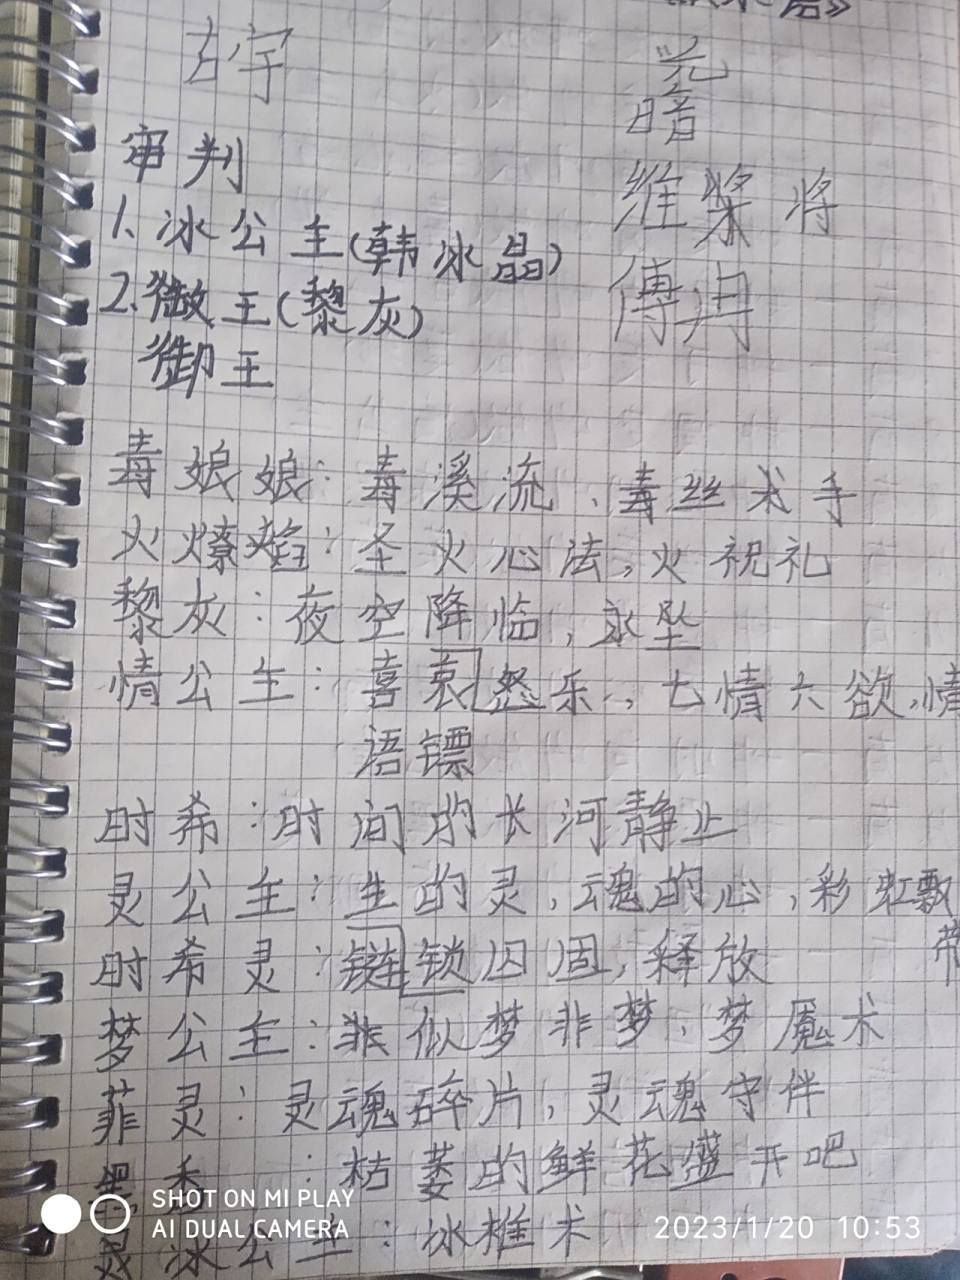 古宇
審判
1、冰公主(韩冰晶)
2、王(黎灰)
御王
暗
维 将
傅
毒娘娘:毒溪流、毒丝术手
火燎焰:圣火心法,火祝礼
黎灰:夜空降临,永坠
情公主:喜哀怒乐、七情六欲,情
语镖
时希:时间的长河静止
灵公主:生的灵,魂的心,彩虹飘
带
时希灵:链锁囚固,释放
梦公主:非似梦非梦、梦魇术
菲灵:灵魂碎片,灵魂守伴
:枯萎的鲜花盛开吧
冰公主:冰椎术
SHOT ON MI PLAY
AI DUAL CAMERA
2023/1/20 10:53